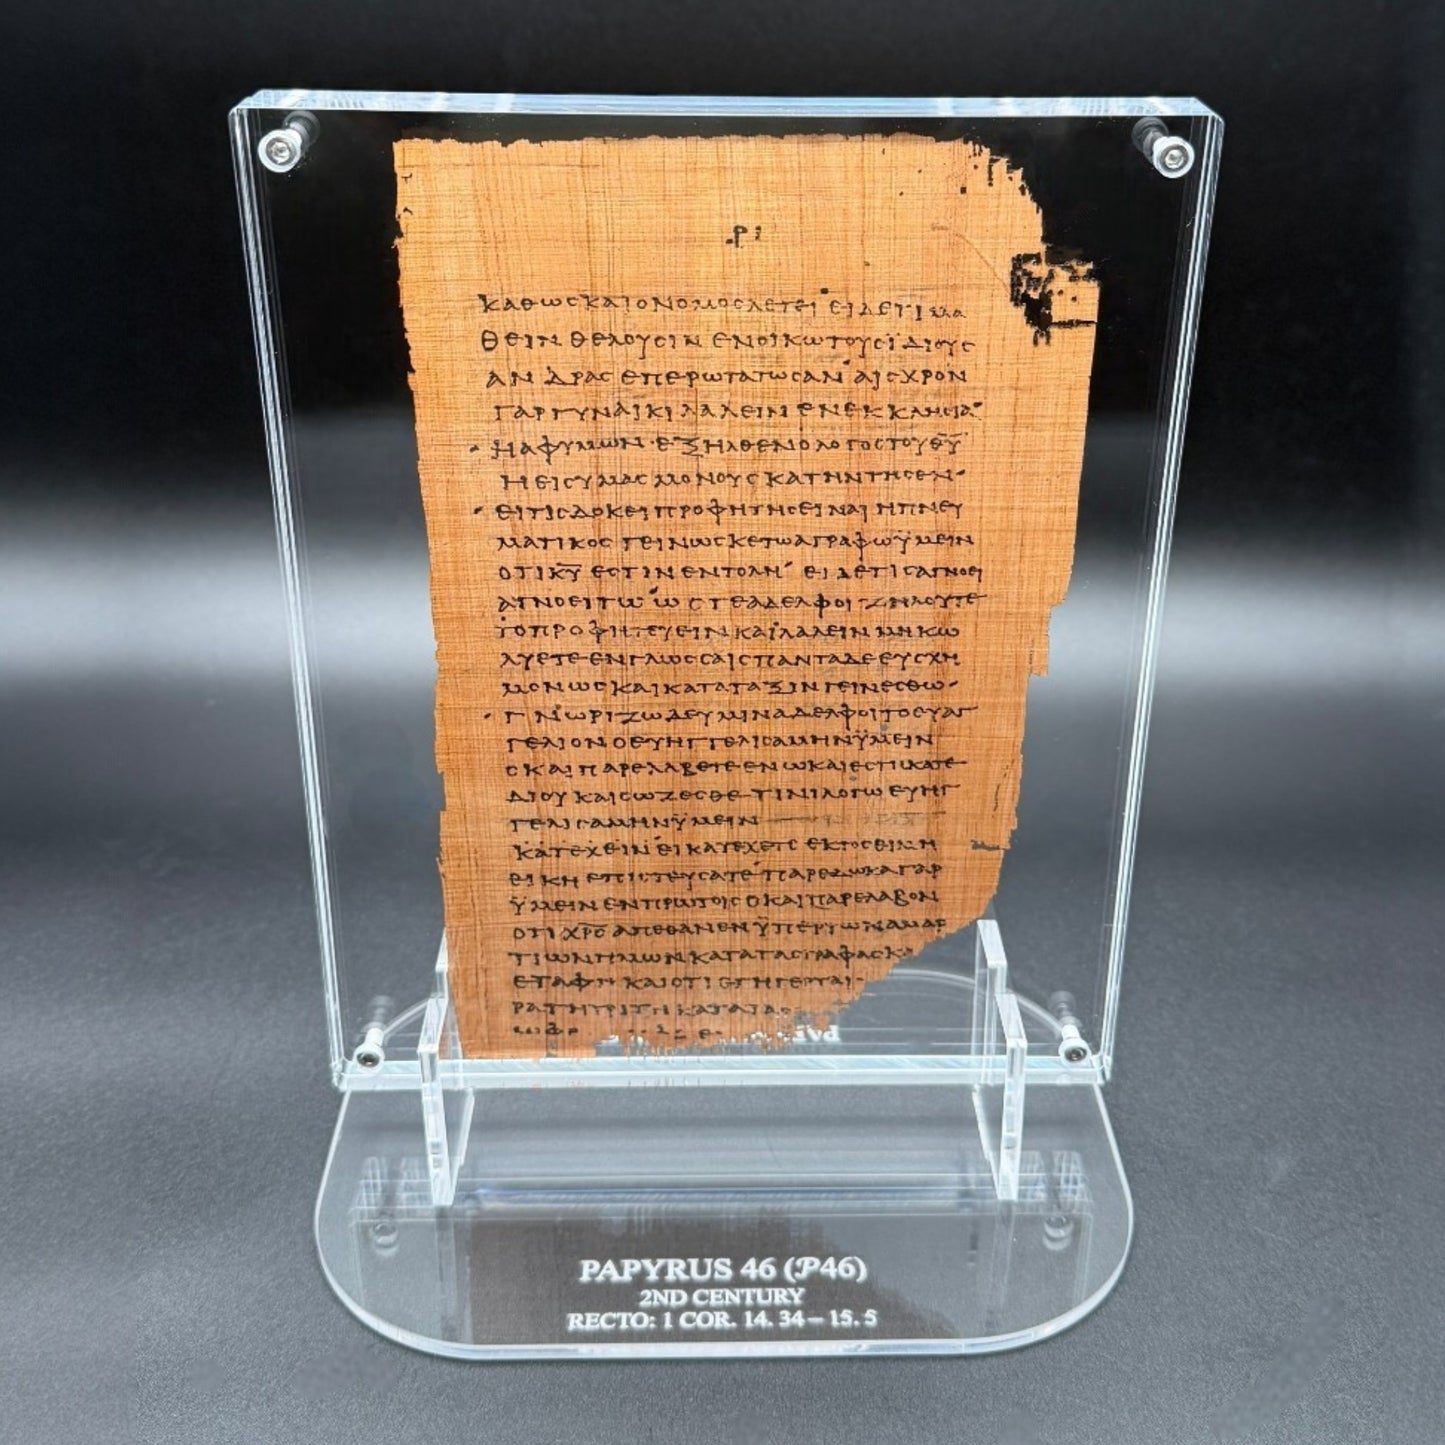 ΡΙ
ΚΑΘΩϹΚΑΙΟΝΟΜΟϹΛΕΓΕΙ ΕΙΔΕΤΙΜΑ
ΘΕΙΝ ΘΕΛΟΥϹΙΝ ΕΝΟΙΚΩΤΟΥϹΪΔΙΟΥϹ
ΑΝΔΡΑϹ ΕΠΕΡΩΤΑΤΩϹΑΝ ΑΙϹΧΡΟΝ
ΓΑΡΓΥΝΑΙΚΙ ΛΑΛΕΙΝ ΕΝΕΚΚΛΗϹΙΑ
ΗΑΦΥΜΩΝ ΕΞΗΛΘΕΝΟΛΟΓΟϹΤΟΥΘ̅Υ̅
ΗΕΙϹΥΜΑϹ ΜΟΝΟΥϹ ΚΑΤΗΝΤΗϹΕΝ
ΕΙΤΙϹΔΟΚΕΙΠΡΟΦΗΤΗϹΕΙΝΑΙ ΗΠΝΕΥ
ΜΑΤΙΚΟϹ ΓΕΙΝΩϹΚΕΤΩΑΓΡΑΦΩΫΜΕΙΝ
ΟΤΙΚ̅Υ̅ ΕϹΤΙΝΕΝΤΟΛΗ ΕΙΔΕΤΙϹΑΓΝΟΕΙ
ΑΓΝΟΕΙΤΩ ΩϹΤΕΑΔΕΛΦΟΙ ΖΗΛΟΥΤΕ
ΤΟΠΡΟΦΗΤΕΥΕΙΝΚΑΙΛΑΛΕΙΝ ΜΗΚΩ
ΛΥΕΤΕ ΕΝΓΛΩϹϹΑΙϹΠΑΝΤΑΔΕΕΥϹΧΗ
ΜΟΝΩϹΚΑΙΚΑΤΑΤΑΞΙΝΓΕΙΝΕϹΘΩ
ΓΝΩΡΙΖΩΔΕΥΜΙΝΑΔΕΛΦΟΙΤΟΕΥΑΓ
ΓΕΛΙΟΝΟΕΥΗΓΓΕΛΙϹΑΜΗΝΫΜΕΙΝ
ΟΚΑΙΠΑΡΕΛΑΒΕΤΕΕΝΩΚΑΙΕϹΤΗΚΑΤΕ
ΔΙΟΥΚΑΙϹΩΖΕϹΘΕ ΤΙΝΙΛΟΓΩΕΥΗΓ
ΓΕΛΙϹΑΜΗΝΫΜΕΙΝ
ΚΑΤΕΧΕΙΝ ΕΙΚΑΤΕΧΕΤΕ ΕΚΤΟϹΕΙΜΗ
ΕΙΚΗ ΕΠΙϹΤΕΥϹΑΤΕ ΠΑΡΕΔΩΚΑΓΑΡ
ΫΜΕΙΝΕΝΠΡΩΤΟΙϹΟΚΑΙΠΑΡΕΛΑΒΟΝ
ΟΤΙ Χ̅Ρ̅Ϲ̅ ΑΠΕΘΑΝΕΝΫΠΕΡΤΩΝΑΜΑΡ
ΤΙΩΝΗΜΩΝΚΑΤΑΤΑϹΓΡΑΦΑϹΚΑ
ΕΤΑΦΗ ΚΑΙΟΤΙ ΕΓΗΓΕΡΤΑΙ
ΡΑΤΗΤΡΙΤΗΚΑΤΑΤΑ
PAPYRUS 46 (𝒫46)
2ND CENTURY
RECTO: 1 COR. 14. 34 – 15. 5